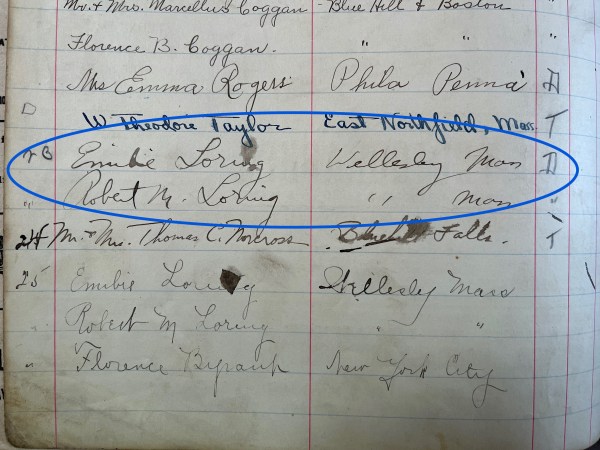 Mr. & Mrs. Marcellus Coggan - Blue Hill & Boston
Florence B. Coggan. " "
Mrs Emma Rogers Phila Penna D
D
W. Theodore Taylor East Northfield, Mass. T
Emilie Loring Wellesley Mass D
" Robert M. Loring " Mass "
24 Mr. & Mrs. Thomas C. Norcross Falls. T
25 Emilie Loring Wellesley Mass
Robert M Loring " "
" Florence New York City